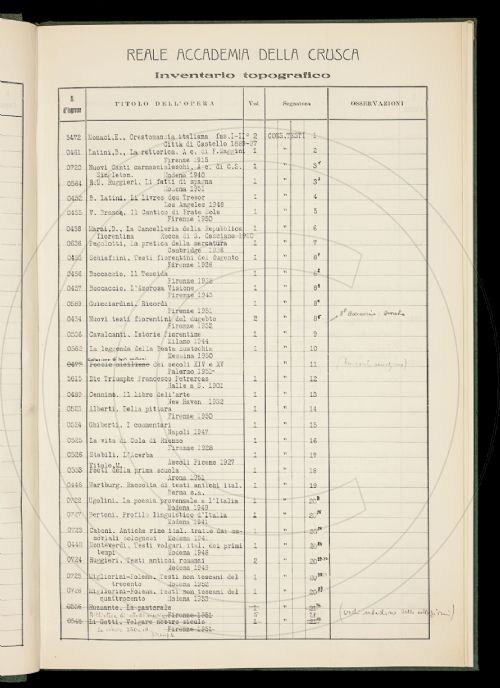 REALE ACCADEMIA DELLA CRUSCA
Inventario topografico
N. d'ingresso TITOLO DELL'OPERA Vol. Segnatura OSSERVAZIONI
5472 Monaci, E., Crestomazia italiana fas. I-II° 2 CONS. TESTI 1
Città di Castello 1889-97
0461 Latini, B., La rettorica. A c. di F. Maggini 1 " 2
Firenze 1915
0720 Nuovi Canti carnascialeschi, A c. di C.S. 1 " 3
Singleton. Modena 1940
0564 R.M. Ruggieri. Li fatti di Spagna 1 " 3
Modena 1951
0452 B. Latini. Li Livres dou Tresor 1 " 4
Los Angeles 1948
0455 V. Branca, Il Cantico di Frate Sole 1 " 5
Firenze 1950
0458 Marzi, D., La Cancelleria della Repubblica 1 " 6
Fiorentina Rocca di S. Casciano 1910
0636 Pegolotti, La pratica della mercatura 1 " 7
Cambridge 1936
0453 Schiaffini, Testi fiorentini del dugento 1 " 8
Firenze 1926
0456 Boccaccio, Il Teseida 1 " 8
Firenze 1938
0457 Boccaccio. L'Amorosa Visione 1 " 8
Firenze 1943
0569 Guicciardini, Ricordi 1 " 8
Firenze 1951
0454 Nuovi testi fiorentini del dugento 2 " 8
Firenze 1952
0536 Cavalcanti. Istorie fiorentine 1 " 9
Milano 1944
0562 La leggenda della Beata Eustochia 1 " 10
Messina 1950
Poesie siciliane dei secoli XIV e XV " 11
Palermo 1951
5615 Die Triumphe Francesco Petrarcas 1 " 12
Halle a S. 1901
0489 Cennino. Il libro dell'arte 1 " 13
New Haven 1932
0521 Alberti. Della pittura 1 " 14
Firenze 1950
0524 Ghiberti. I commentari 1 " 15
Napoli 1947
0525 La vita di Cola di Rienzo 1 " 16
Firenze 1928
0526 Stabili. L'Acerba 1 " 17
Ascoli Piceno 1927
Vitale, M.
0553 Poeti della prima scuola 1 " 18
Arona 1951
0446 Wartburg. Raccolta di testi antichi ital. 1 " 19
Berna s.a.
0722 Ugolini. La poesia provenzale e l'Italia 1 " 20
Modena 1949
0727 Bertoni. Profilo linguistico d'Italia 1 " 20
Modena 1941
0723 Caboni. Antiche rime ital. tratte dai me- 1 " 20
moriali bolognesi Modena 1941
0448 Monteverdi. Testi volgari ital. dei primi 1 " 20
tempi Modena 1948
0724 Ruggieri. Testi antichi romanzi 2 " 20
Modena 1949
0725 Migliorini-Folena. Testi non toscani del 1 " 20
trecento Modena 1952
0726 Migliorini-Folena. Testi non toscani del 1 " 20
quattrocento Modena 1953
0556 Ruzzante. La pastorale 1 "
Firenze 1951
0546 Li Gotti. Volgare nostro siculo 1 "
Firenze 1951